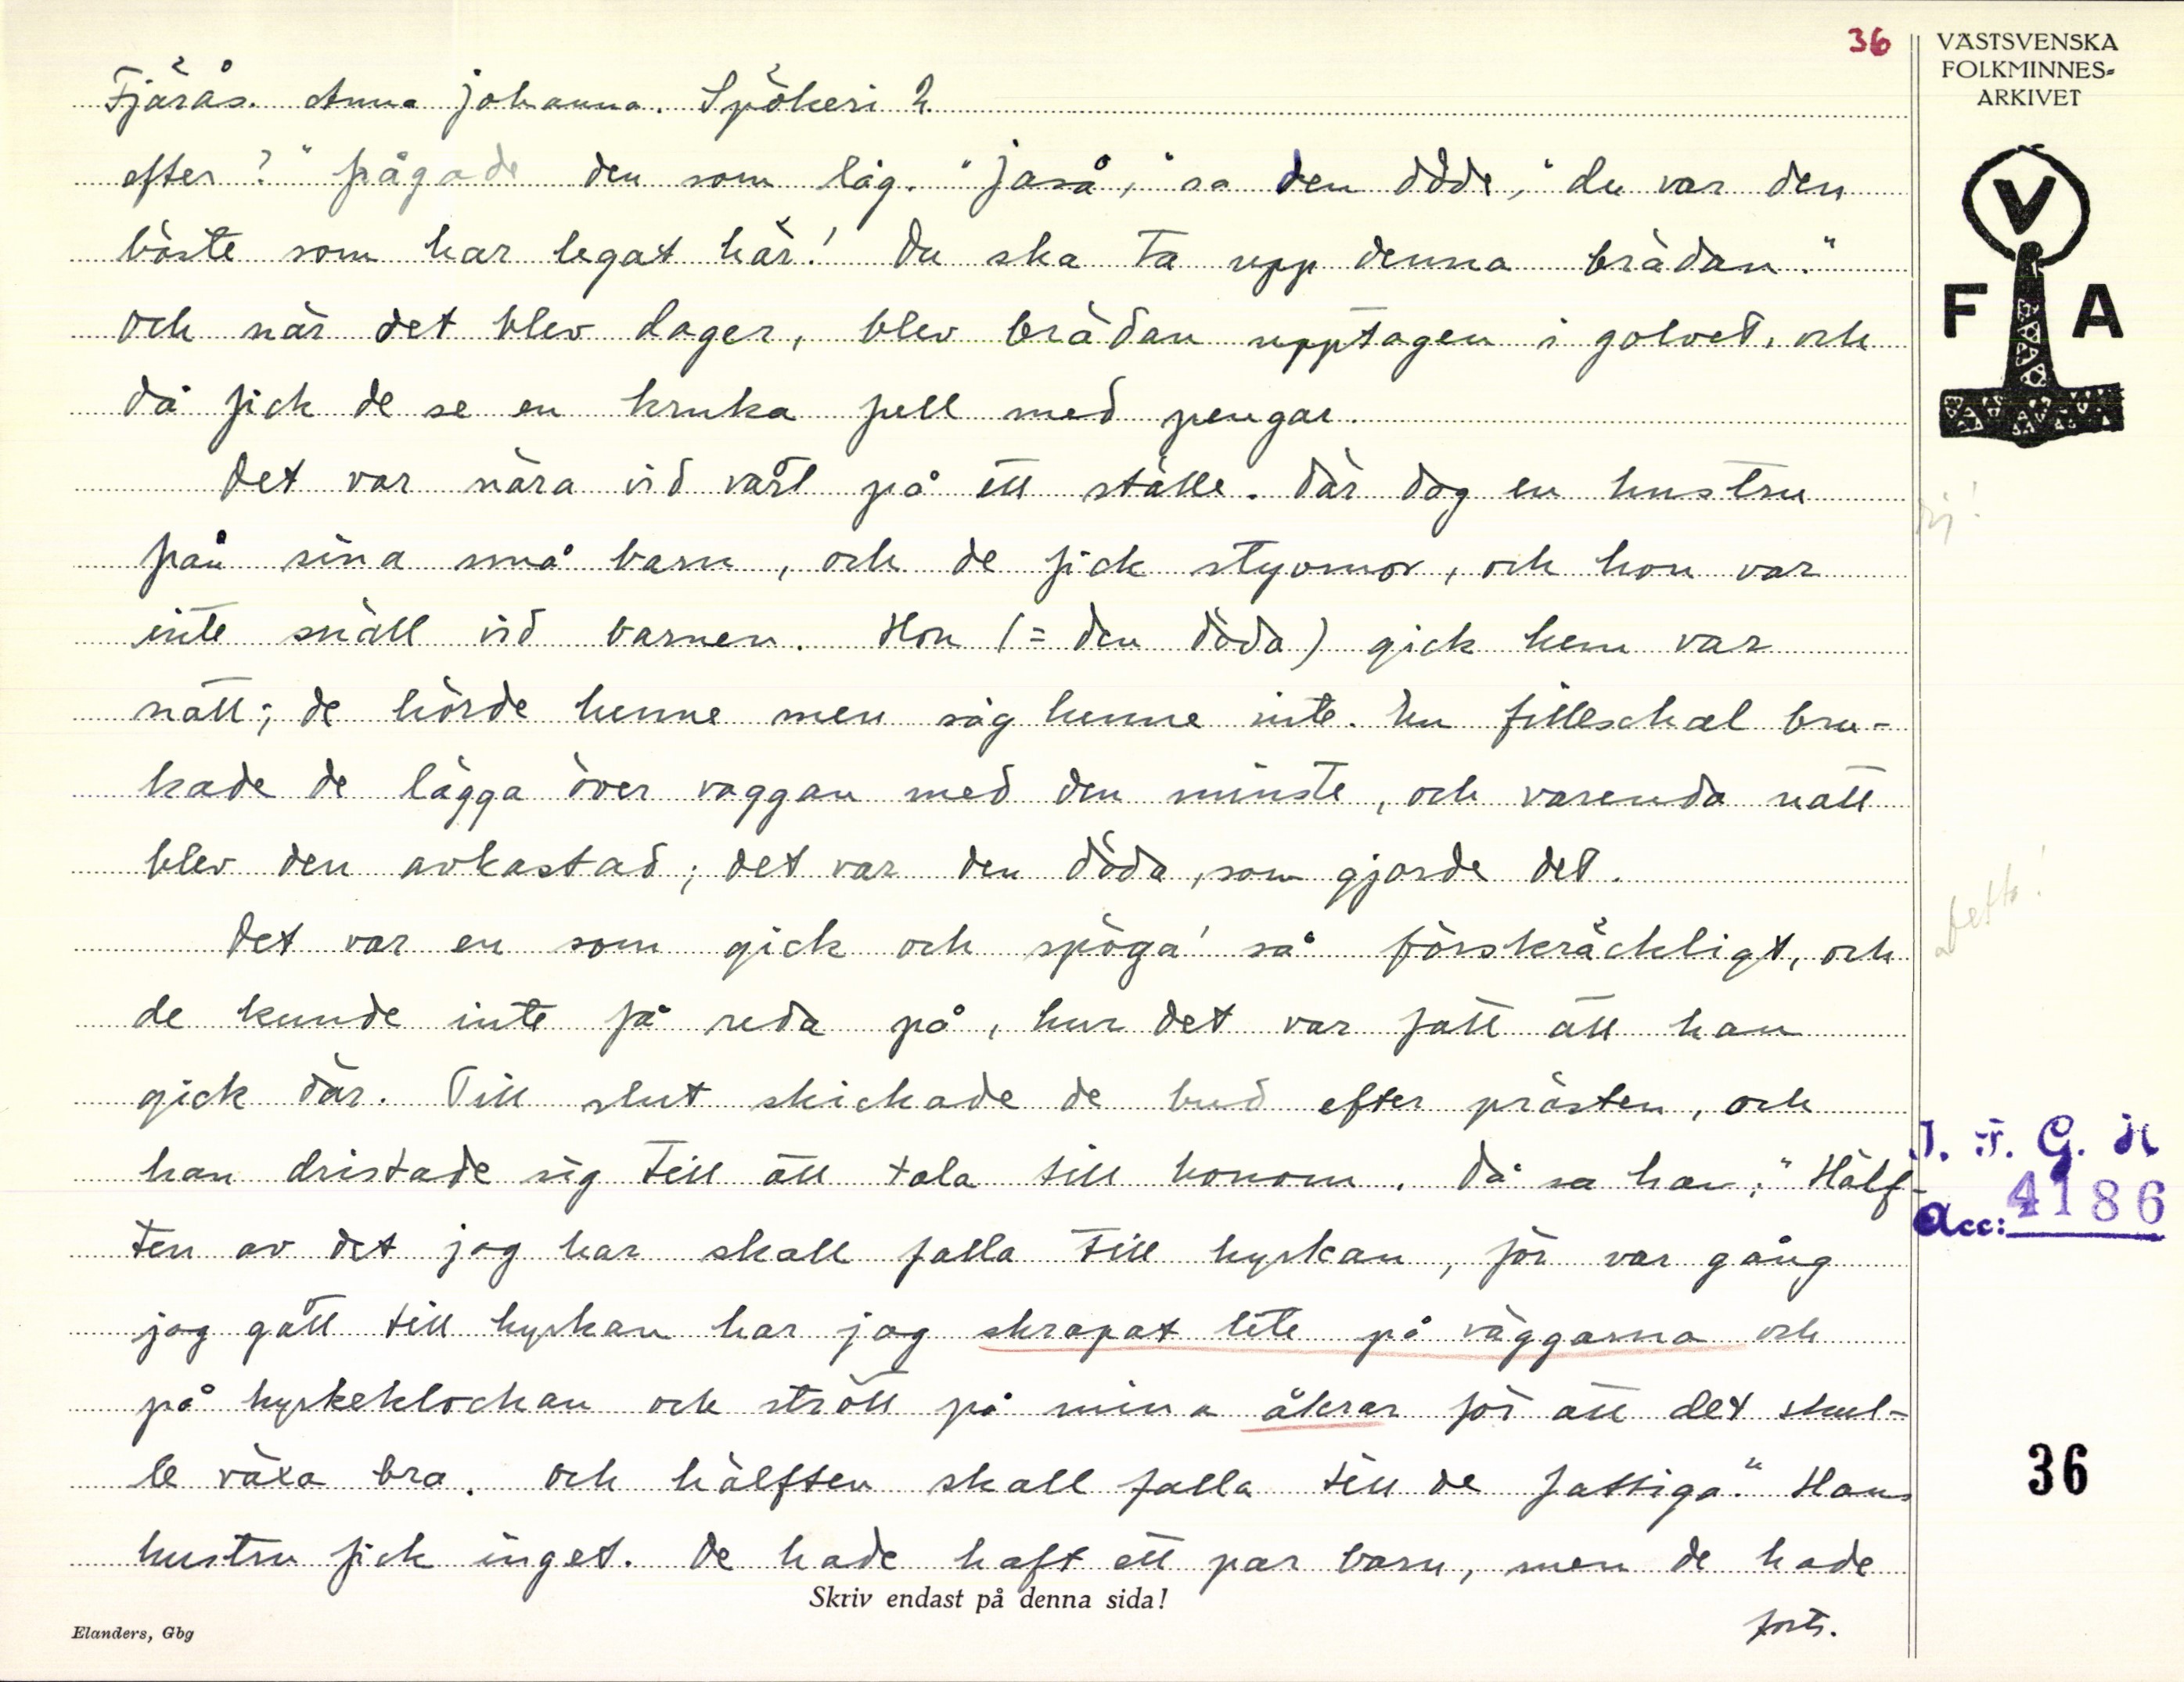 36
VÄSTSVENSKA
FOLKMINNES-
ARKIVET
V
F A
Fjärås. Anna Johanna. Spökeri 2.
efter?" frågade den som låg. "Jaså," sa den döde, "du var den
bäste som har legat här! Du ska ta upp denna brädan."
Och när det blev dager, blev brädan upptagen i golvet, och
då fick de se en kruka full med pengar.
Det var nära vid vårt på ett ställe. Där dog en hustru
från sina små barn, och de fick styvmor, och hon var
inte snäll vid barnen. Hon (= den döda) gick hem var
natt; de hörde henne men såg henne inte. En filleschal bru-
kade de lägga över vaggan med den minste, och varenda natt
blev den avkastad; det var den döda, som gjorde det.
Det var en som gick och spöga' så förskräckligt, och
de kunde inte få reda på, hur det var fatt att han
gick där. Till slut skickade de bud efter prästen, och
han dristade sig till att tala till honom. Då sa han: "Hälf-
ten av det jag har skall falla till kyrkan, för var gång
jag gått till kyrkan har jag skrapat lite på väggarna och
på kyrkeklockan och strött på mina åkrar för att det skul-
le växa bra. Och hälften skall falla till de fattiga." Hans
hustru fick inget. De hade haft ett par barn, men de hade
forts.
I. F. G. H
Acc: 4186
36
Skriv endast på denna sida!
Elanders, Gbg